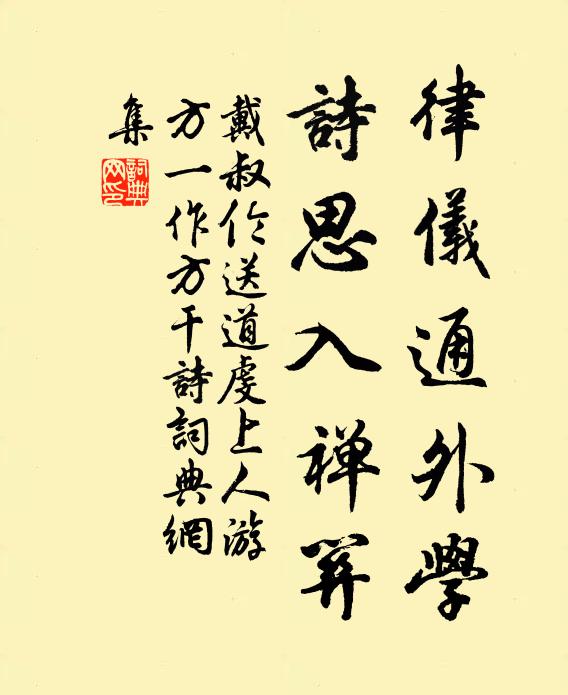 律儀通外學
詩思入禅關
戴叔伦送道虔上人游
方一作方干詩詞典網
集
詞典
网印